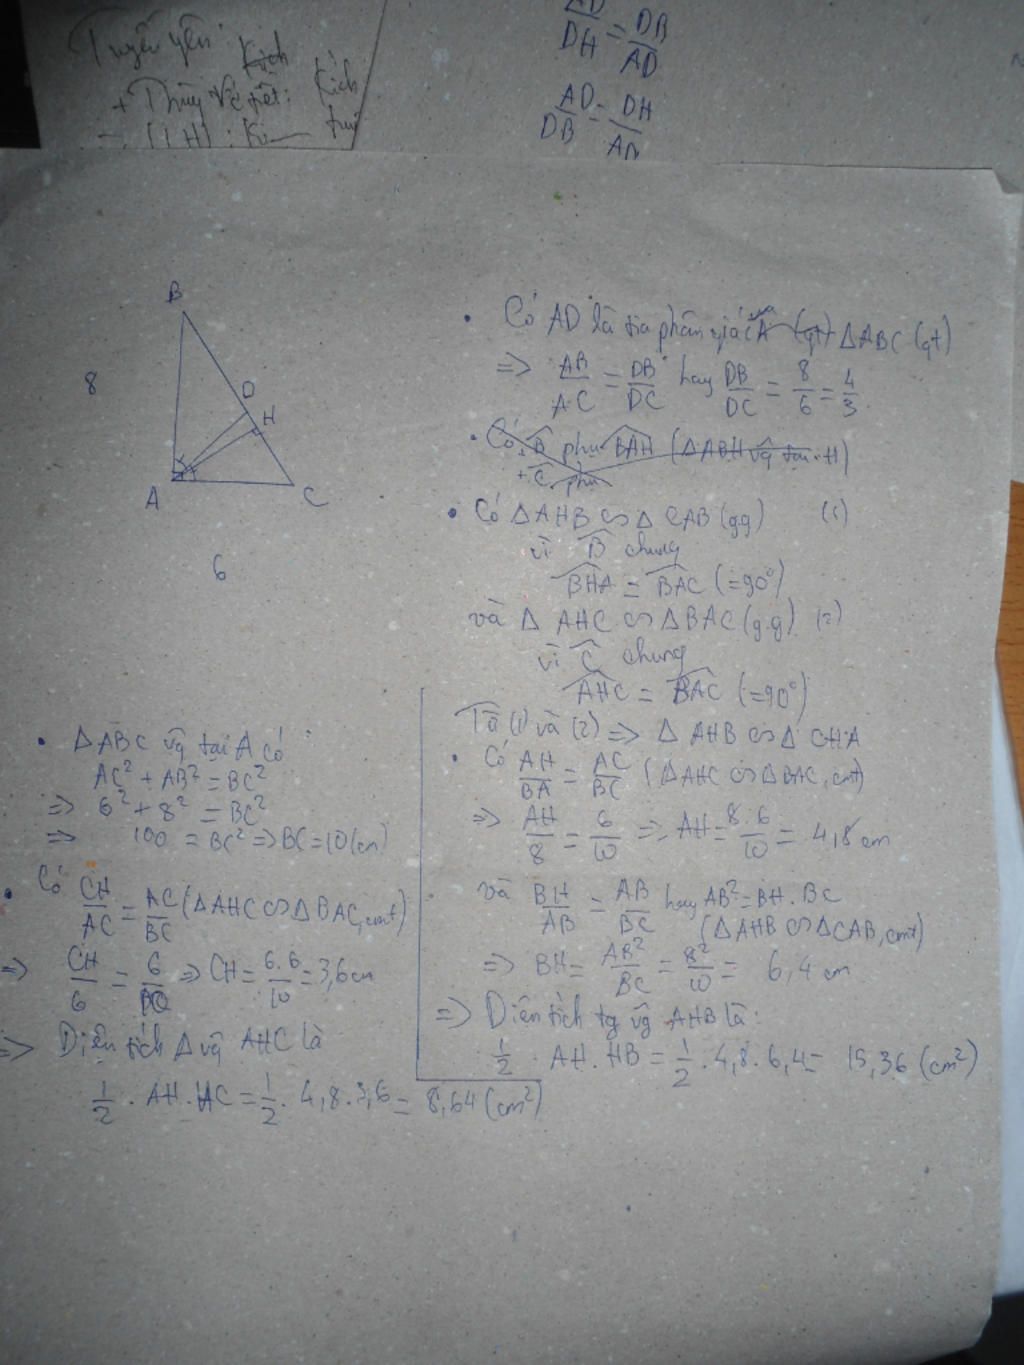 Truyền
+
DH = DB
AD
AD = DH
DB
B
8
D
H
A
C
6
• Có AD là tia phân giác của ΔABC (gt)
=> AB/AC = DB/DC hay DB/DC = 8/6 = 4/3
• Có + B phụ BAH (ΔABH vg tại H)
+ C phụ
• Có ΔAHB ∽ Δ CAB (gg) (1)
vì B̂ chung
BHA = BAC (=90°)
và Δ AHC ∽ ΔBAC (g.g) (2)
vì Ĉ chung
AHC = BAC (=90°)
Từ (1) và (2) => Δ AHB ∽ Δ CHA
• Có AH/BA = AC/BC (ΔAHC ∽ ΔBAC, cmt)
=> AH/8 = 6/10 => AH = 8.6/10 = 4,8 cm
và BH/AB = AB/BC hay AB² = BH.BC
(ΔAHB ∽ ΔCAB, cmt)
=> BH = AB²/BC = 8²/10 = 6,4 cm
=> Diện tích tg vg AHB là:
1/2 . AH. HB = 1/2 . 4,8. 6,4 = 15,36 (cm²)
• ΔABC vg tại A có
AC² + AB² = BC²
=> 6² + 8² = BC²
=> 100 = BC² => BC = 10 (cm)
• Có CH/AC = AC/BC (ΔAHC ∽ Δ BAC, cmt)
=> CH/6 = 6/10 => CH = 6.6/10 = 3,6 cm
=> Diện tích Δ vg AHC là
1/2 . AH. HC = 1/2 . 4,8. 3,6 = 8,64 (cm²)